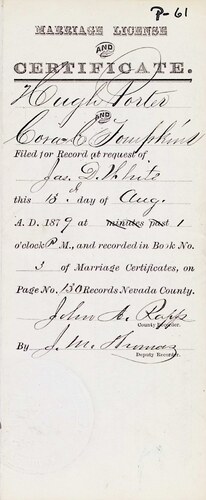 P-61
MARRIAGE LICENSE
AND
CERTIFICATE.
Hugh Porter
AND
Cora E Tompkins
Filed for Record at request of
Jas. D. White
this 15th day of Aug.
A. D. 1879 at minutes past 1
o'clock P M., and recorded in Book No.
3 of Marriage Certificates, on
Page No. 150 Records Nevada County.
John A. Rapp
County Recorder.
By J. M. Thomas
Deputy Recorder.